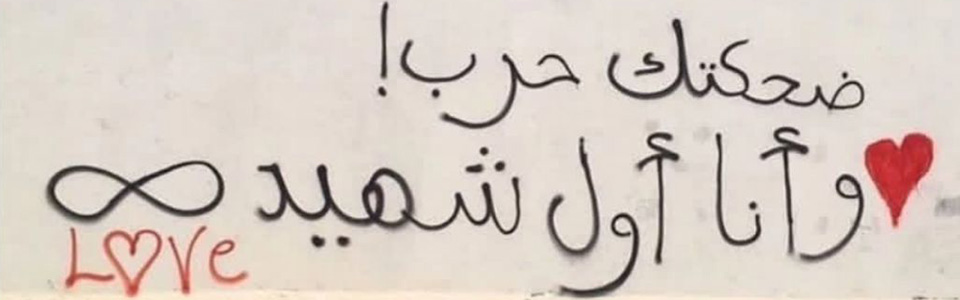 ضحكتك حرب!
وأنا أول شهيد
Love